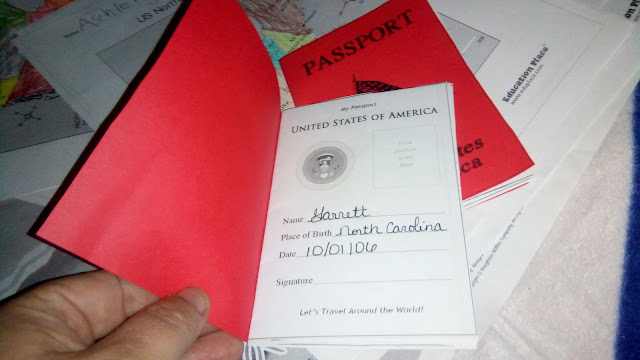 US North
PASSPORT
Education Place®
www.eduplace.com
My Passport
UNITED STATES OF AMERICA
Name Garrett
Place of Birth North Carolina
Date 10/01/06
Signature
Let's Travel Around the World!